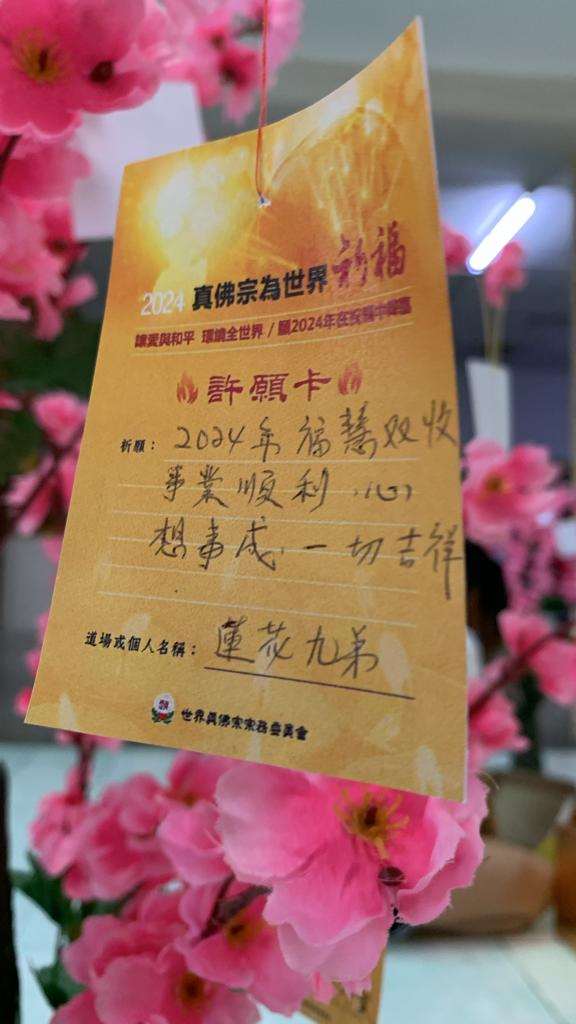 2024 真佛宗為世界祈福
讓愛與和平 環繞全世界 / 願2024年在祝福中綻
許願卡
祈願： 2024年 福慧双收
事業順利 心
想事成 一切吉祥
道場或個人名稱： 蓮花九弟
世界真佛宗宗務委員會